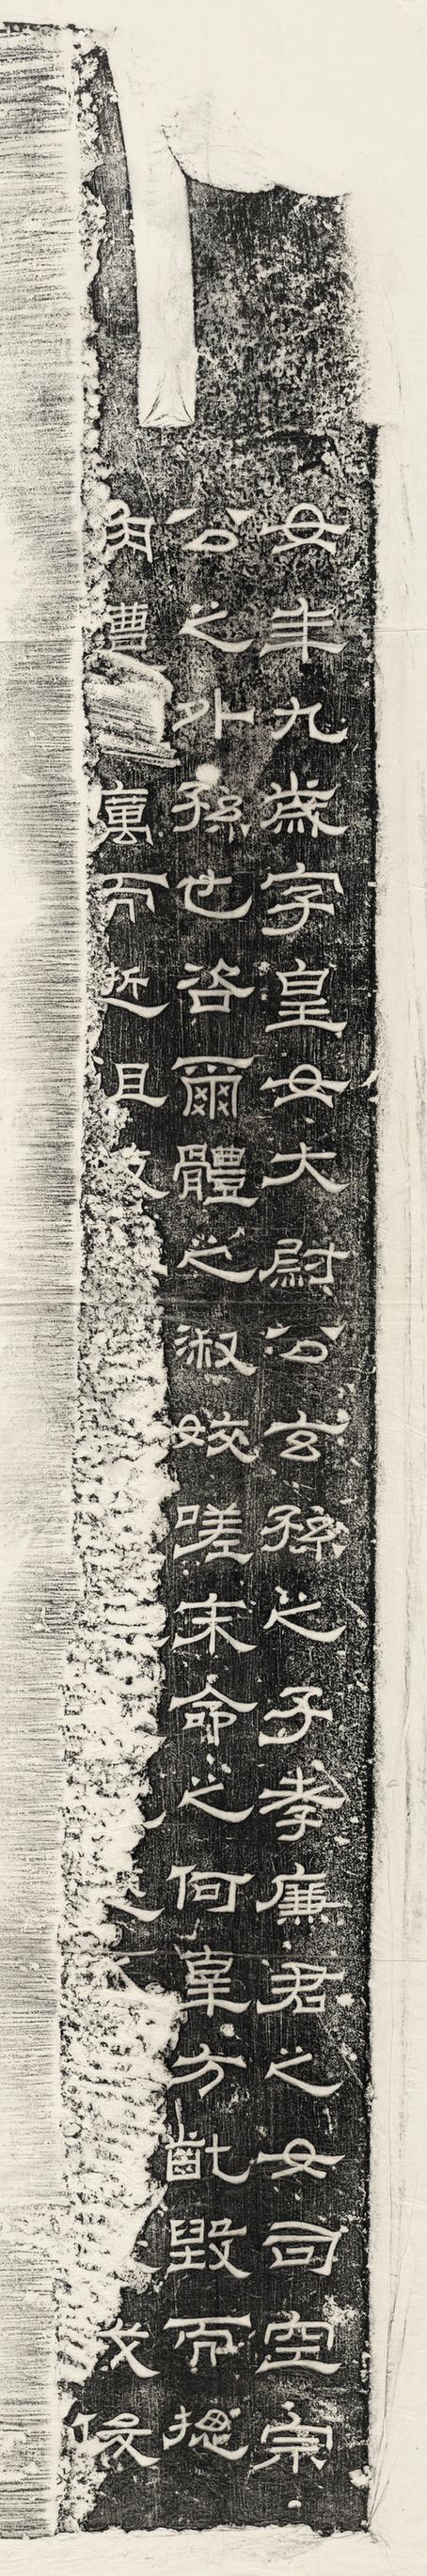 女年九歲字皇女大尉公玄孫之子孝廉君之女司空宗
公之外孫也咨爾體之淑姣嗟末命之何辜方齔毀而揔
角遭厲而逝徂